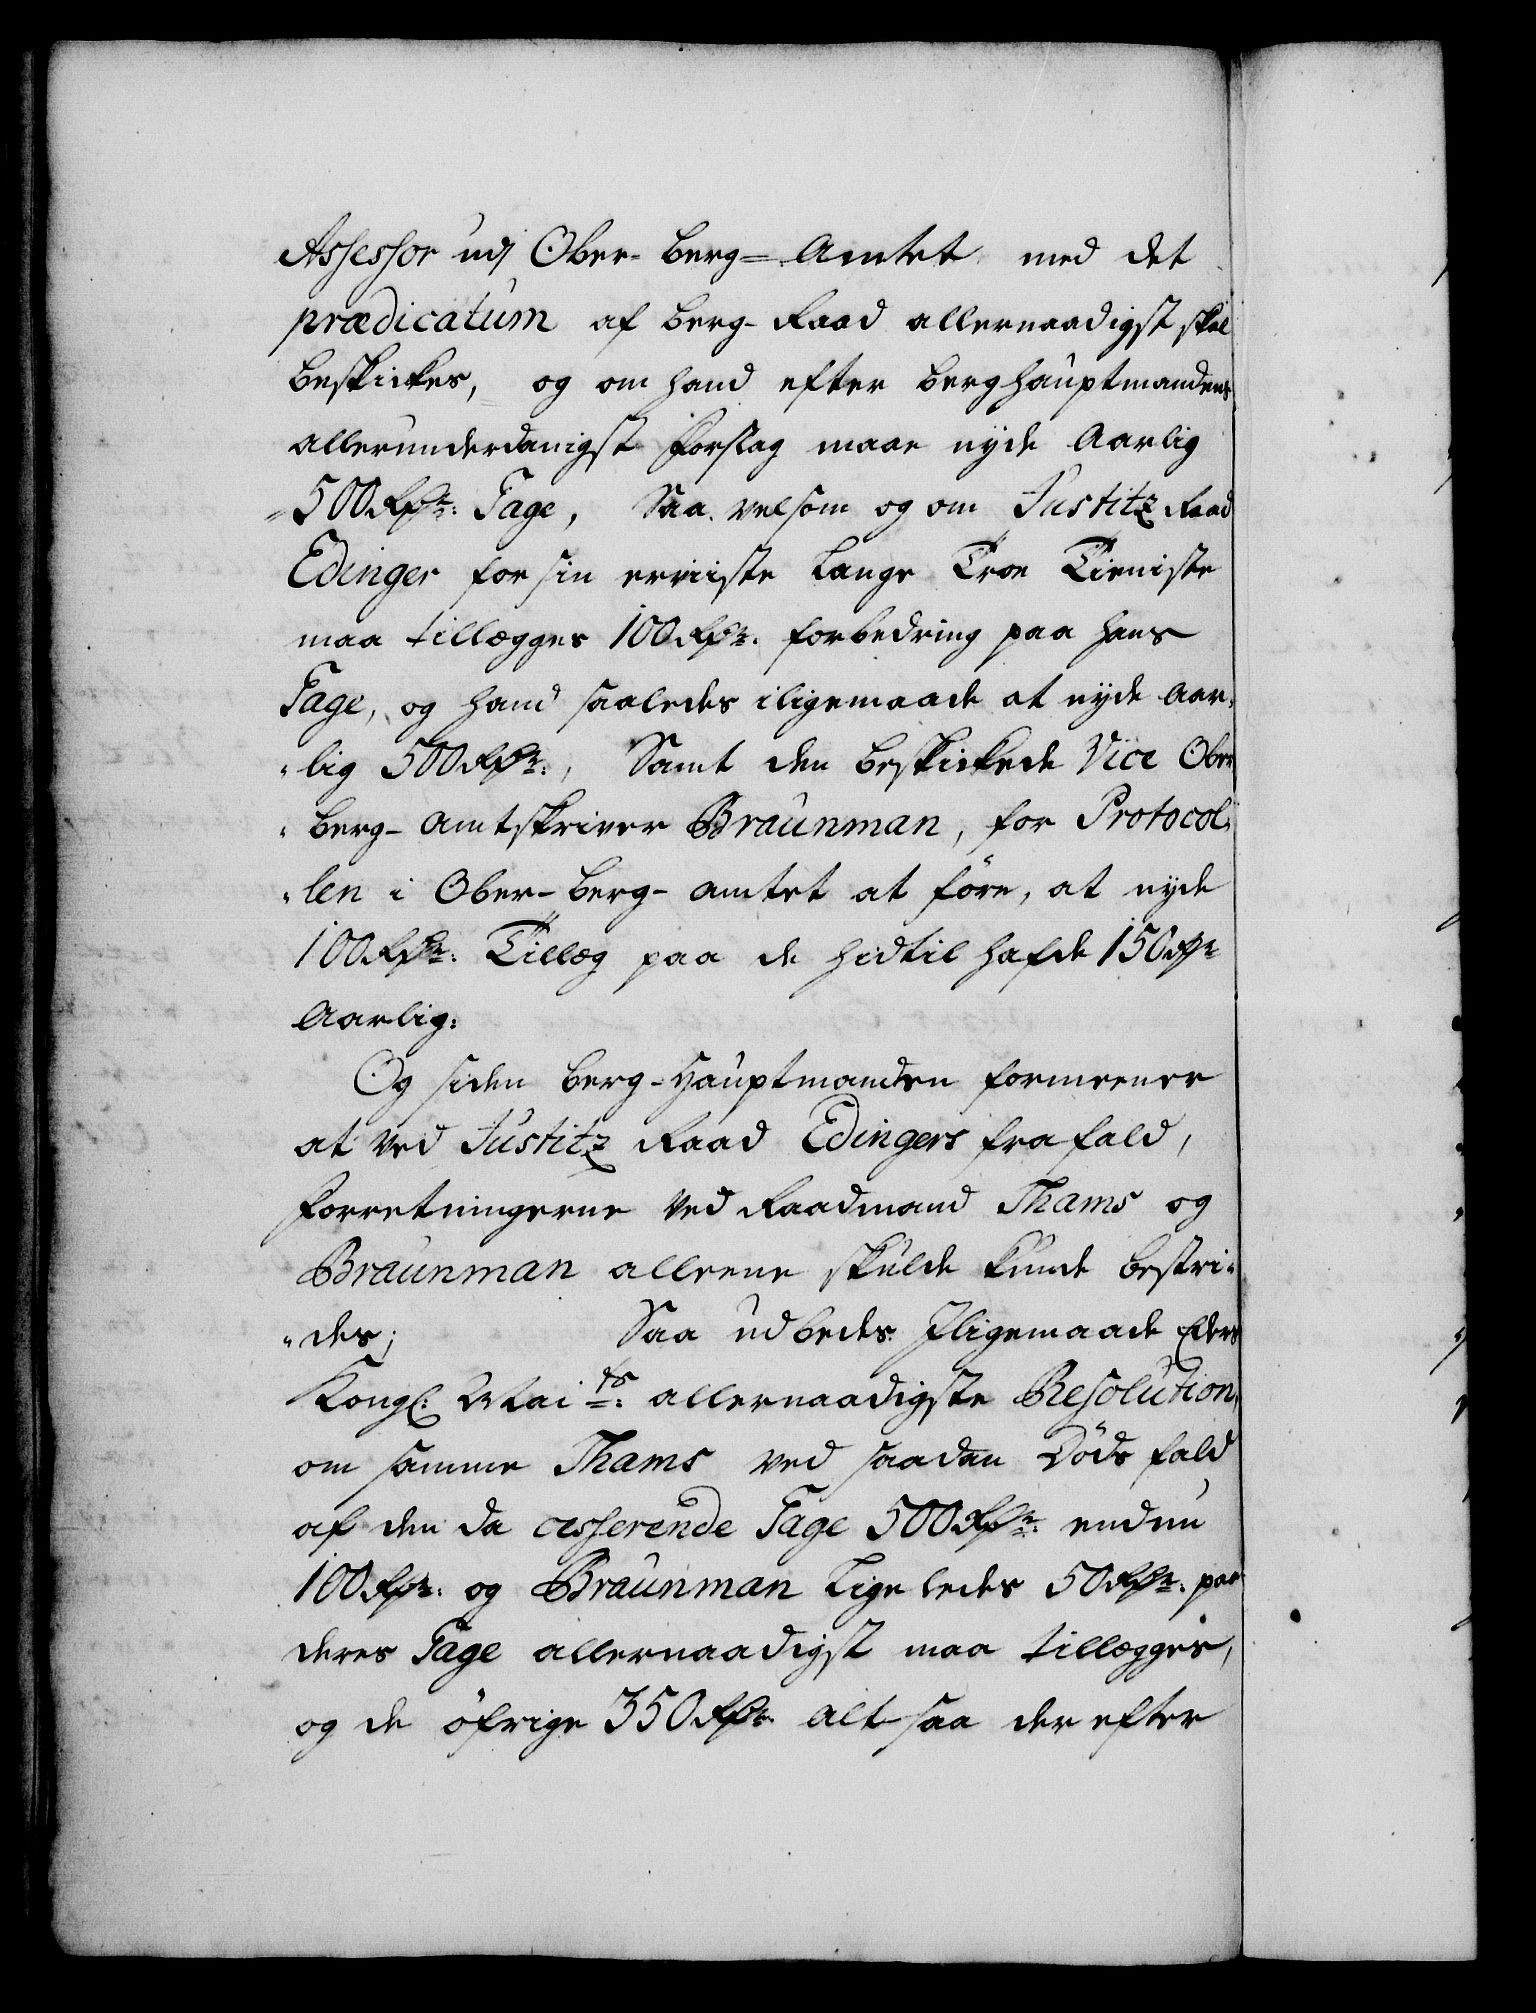 Assessor udj Ober-Berg-Amtet med det
prædicatum af Berg-Raad allernaadigst skal
beskickes, og om hand efter Berghauptmandens
allerunderdanigst forslag maae nyde Aarlig
500 Rdr: Gage, Saa velsom og om Justitz Raad
Edinger for sin erviiste lange Troe Tieniste
maa tillægges 100 Rdr: forbedring paa hans
Gage, og hand saaledes iligemaade at nyde Aar-
-lig 500 Rdr:, Samt den beskickede Vice Ober
-berg-amtskriver Braunman, for Protocol-
-len i Ober-Berg-amtet at före, at nyde
100 Rdr: Tillæg paa de hidtil hafde 150 Rdr
Aarlig:
Og siden Berg-Hauptmanden formeener
at ved Justitz Raad Edingers frafald,
forretningerne ved Raadmand Thams og
Braunman alleene skulde kunde bestri-
-des; Saa udbedes Iligemaade Eders
Kongl: Mai ts: allernaadigste Resolution,
om samme Thams ved saadan Döds fald
af den da cesserende Gage 500 Rdr: endnu
100 Rdr: og Braunman Lige ledes 50 Rdr: paa
deres Gage allernaadigst maa tillægges,
og de öfrige 350 Rdr: alt saa der efter